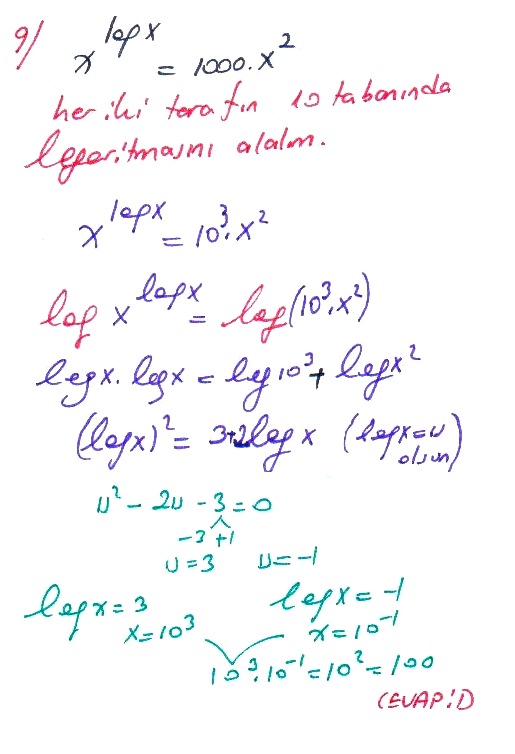 9/ x^logx = 1000.x²
her iki tarafın 10 tabanında
logaritmasını alalım.
x^logx = 10³.x²
log x^logx = log(10³.x²)
logx.logx = log10³ + logx²
(logx)² = 3+2logx (logx=u olsun)
u² - 2u - 3 = 0
-3 +1
u = 3 u = -1
logx = 3 logx = -1
x = 10³ x = 10⁻¹
10³.10⁻¹ = 10² = 100
CEVAP:D